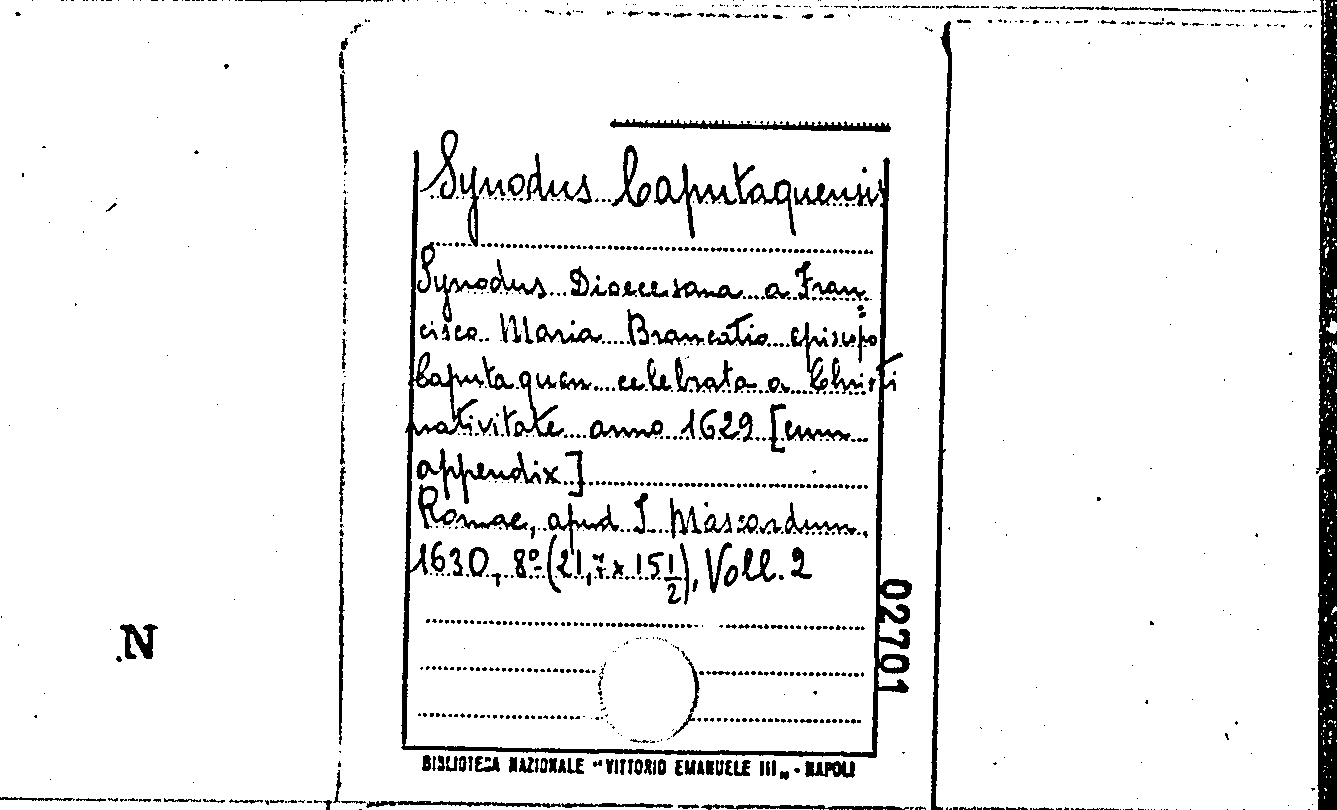 Synodus Caputaquensis
Synodus Dioecesana a Fran=
cisco Maria Brancatio episcopo
Caputaquen celebrata a Christi
nativitate anno 1629 [cum
appendix]
Romae, apud I Mascardum,
1630, 8º (21,7 x 15 1/2), Voll. 2
02701
N
BIBLIOTECA NAZIONALE "VITTORIO EMANUELE III„ - NAPOLI